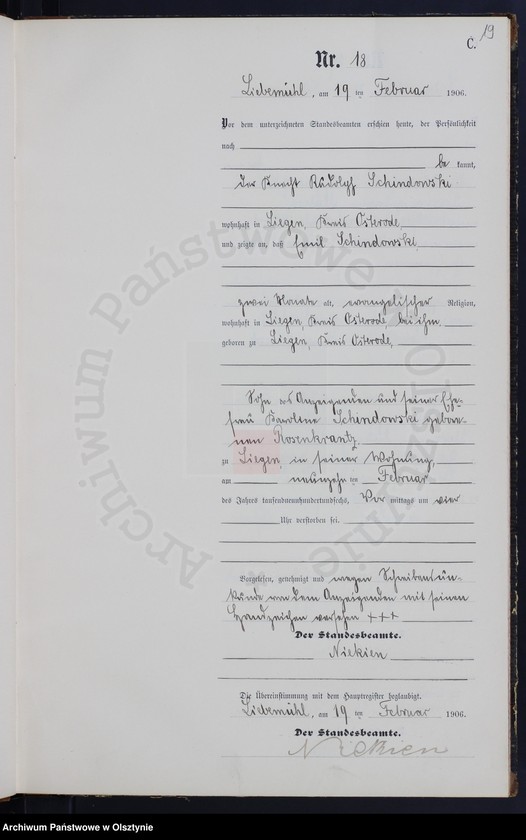 19
C.
Nr. 18
Liebemühl, am 19 ten Februar 1906.
Vor dem unterzeichneten Standesbeamten erschien heute, der Persönlichkeit
nach
be kannt,
der Knecht Rudolph Schindowski
wohnhaft in Liegen, Kreis Osterode,
und zeigte an, daß Emil Schindowski,
zwei Monate alt, evangelischer Religion,
wohnhaft in Liegen, Kreis Osterode, bei ihm,
geboren zu Liegen, Kreis Osterode,
Sohn des Anzeigenden und seiner Ehe-
frau Karoline Schindowski gebore-
nen Rosenkrantz,
zu Liegen, in seiner Wohnung,
am neunzehn ten Februar
des Jahres tausendneunhundertundsechs, Vor mittags um vier
Uhr verstorben sei.
Vorgelesen, genehmigt und wegen Schreibensun-
kunde von dem Anzeigenden mit seinen
Handzeichen versehen +++
Der Standesbeamte.
Niekien
Die Übereinstimmung mit dem Hauptregister beglaubigt.
Liebemühl, am 19 ten Februar 1906.
Der Standesbeamte.
Niekien
Archiwum Państwowe w Olsztynie
Archiwum Państwowe w Olsztynie